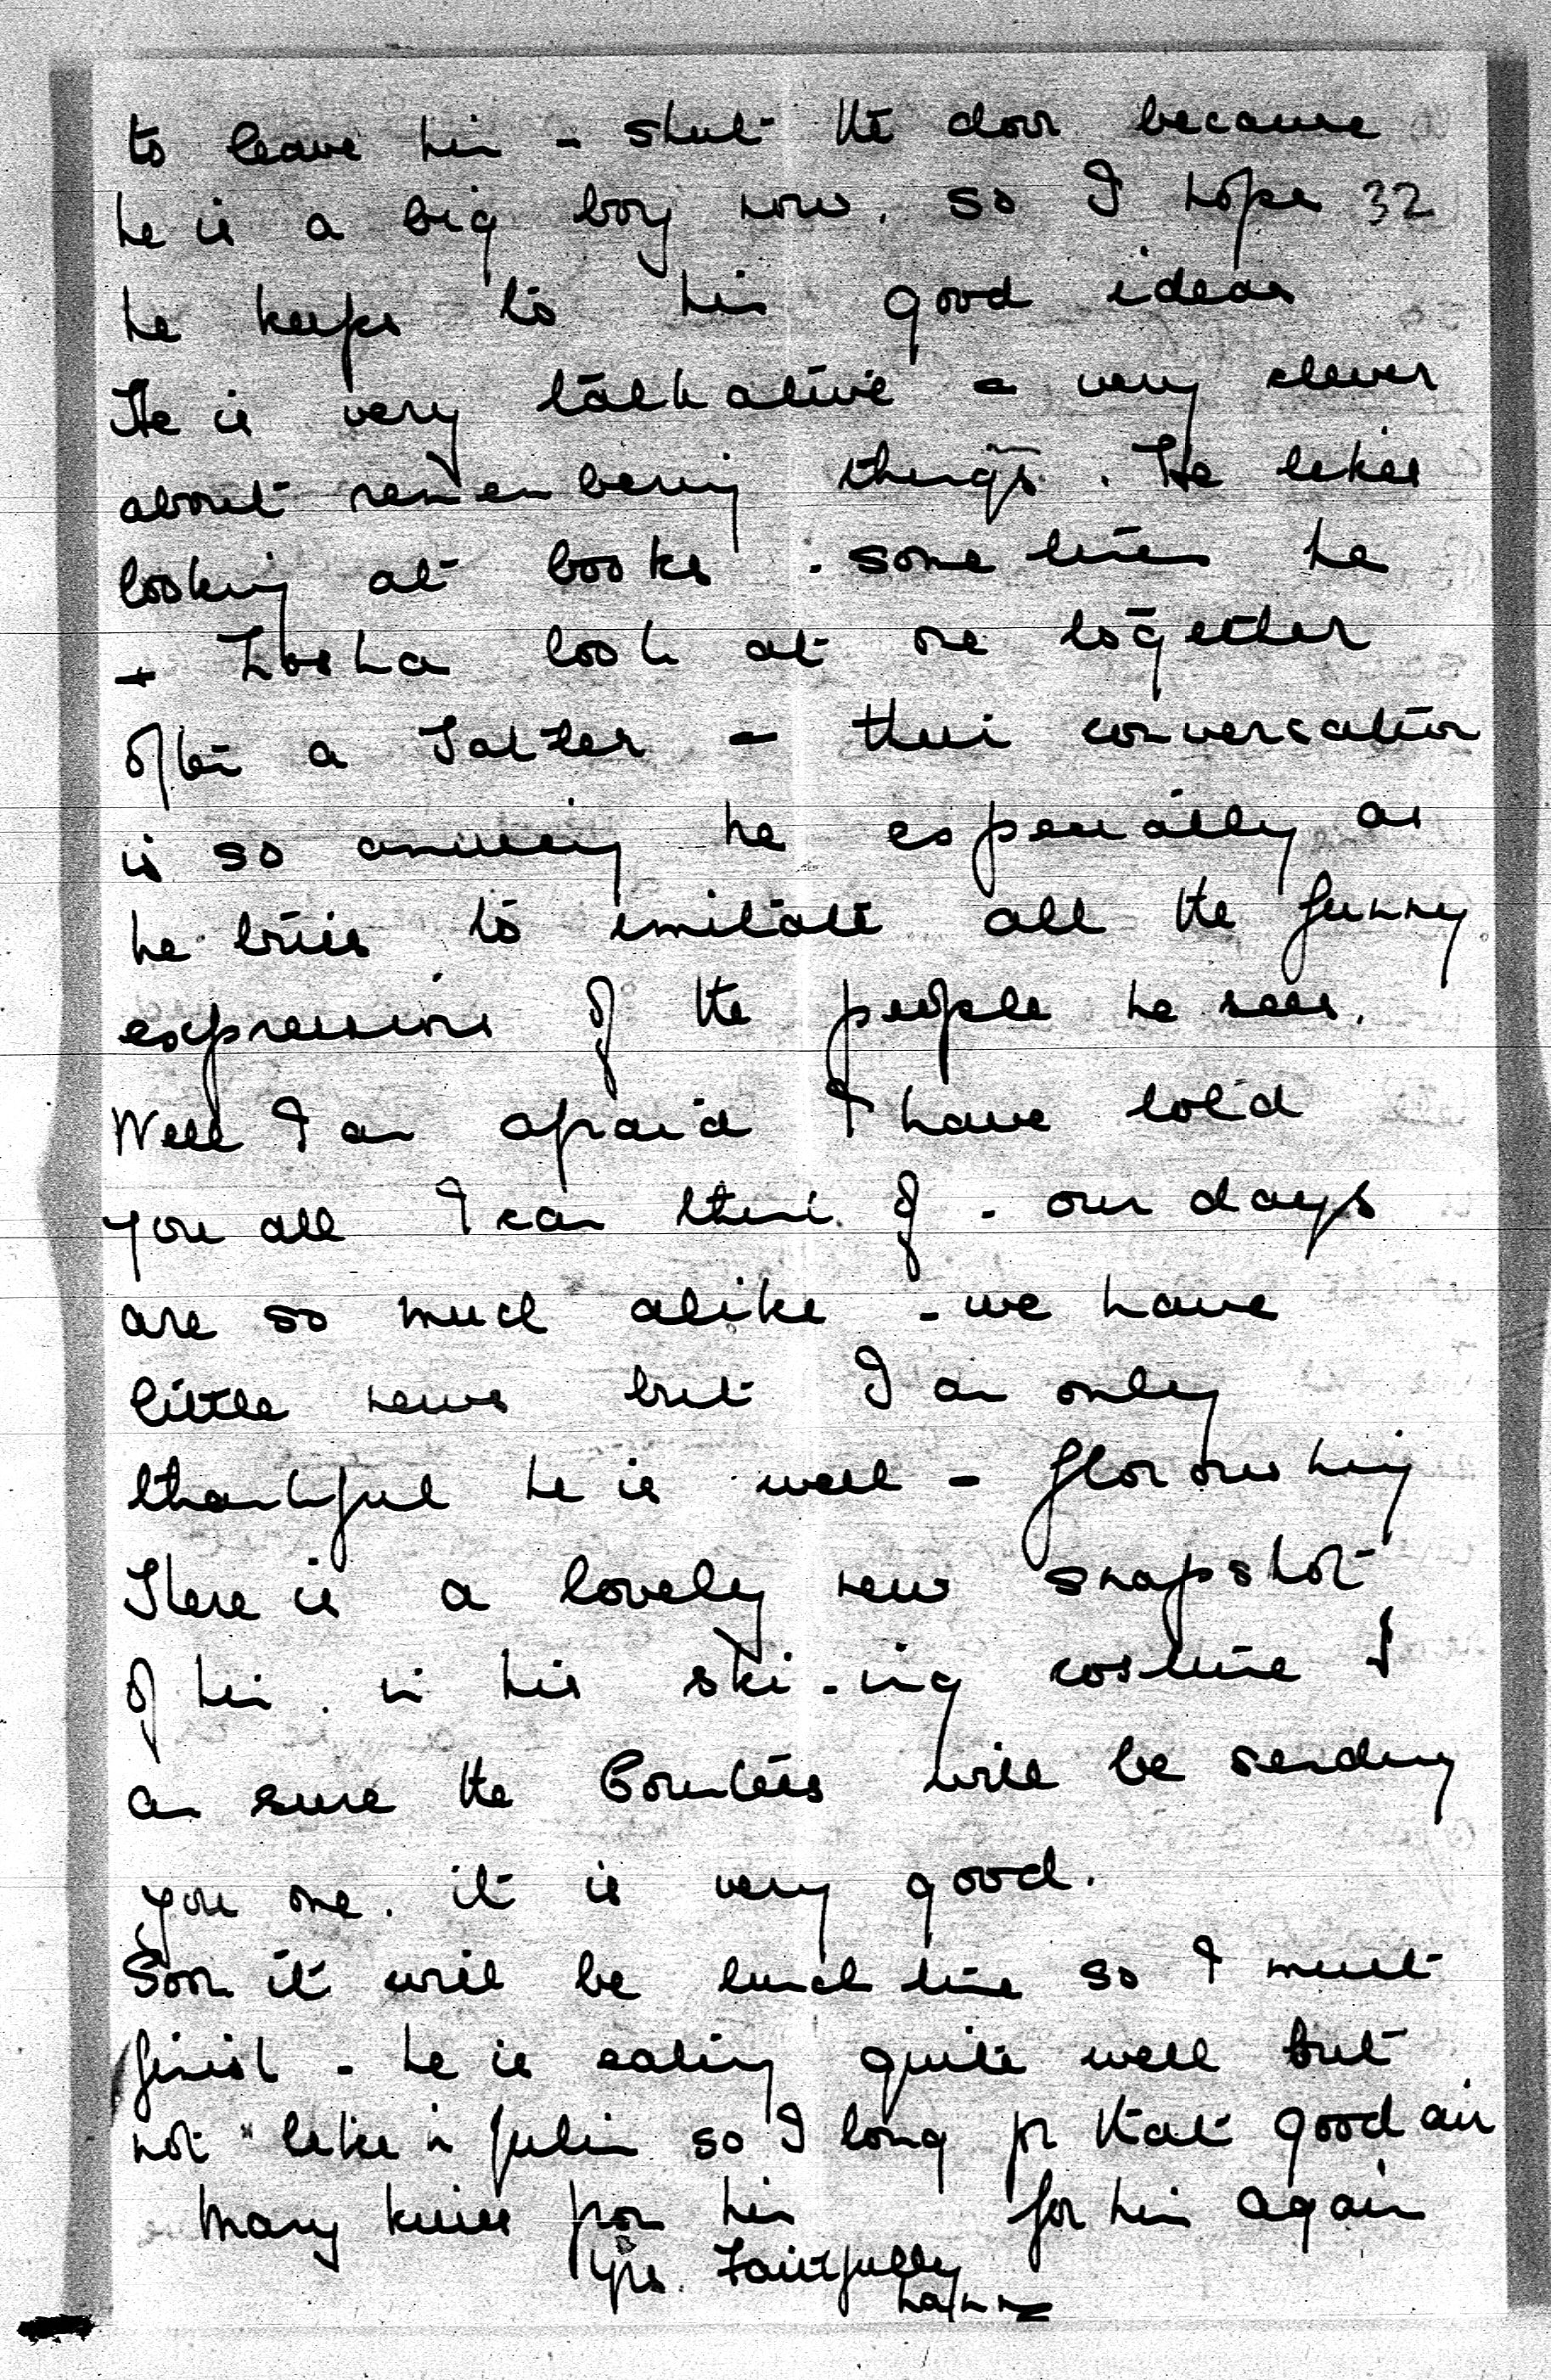 to leave him - shut the door because
he is a big boy now. so I hope 32
he keeps to his good ideas
He is very talkative - very clever
about remembering things. He likes
looking at books. some times he
+ look at one together
often a Tatler - their conversation
is so amusing he especially as
he tries to imitate all the funny
expressions of the people he sees.
Well I am afraid I have told
you all I can think of. our days
are so much alike - we have
little news but I am only
thankful he is well -
There is a lovely new snapshot
of him. in his ski-ing costume I
am sure the Countess will be sending
you one. it is very good.
Soon it will be lunch time so I must
finish - he is eating quite well but
not like in so I long for that good air
for him again
Many kisses from him
Yrs. Faithfully